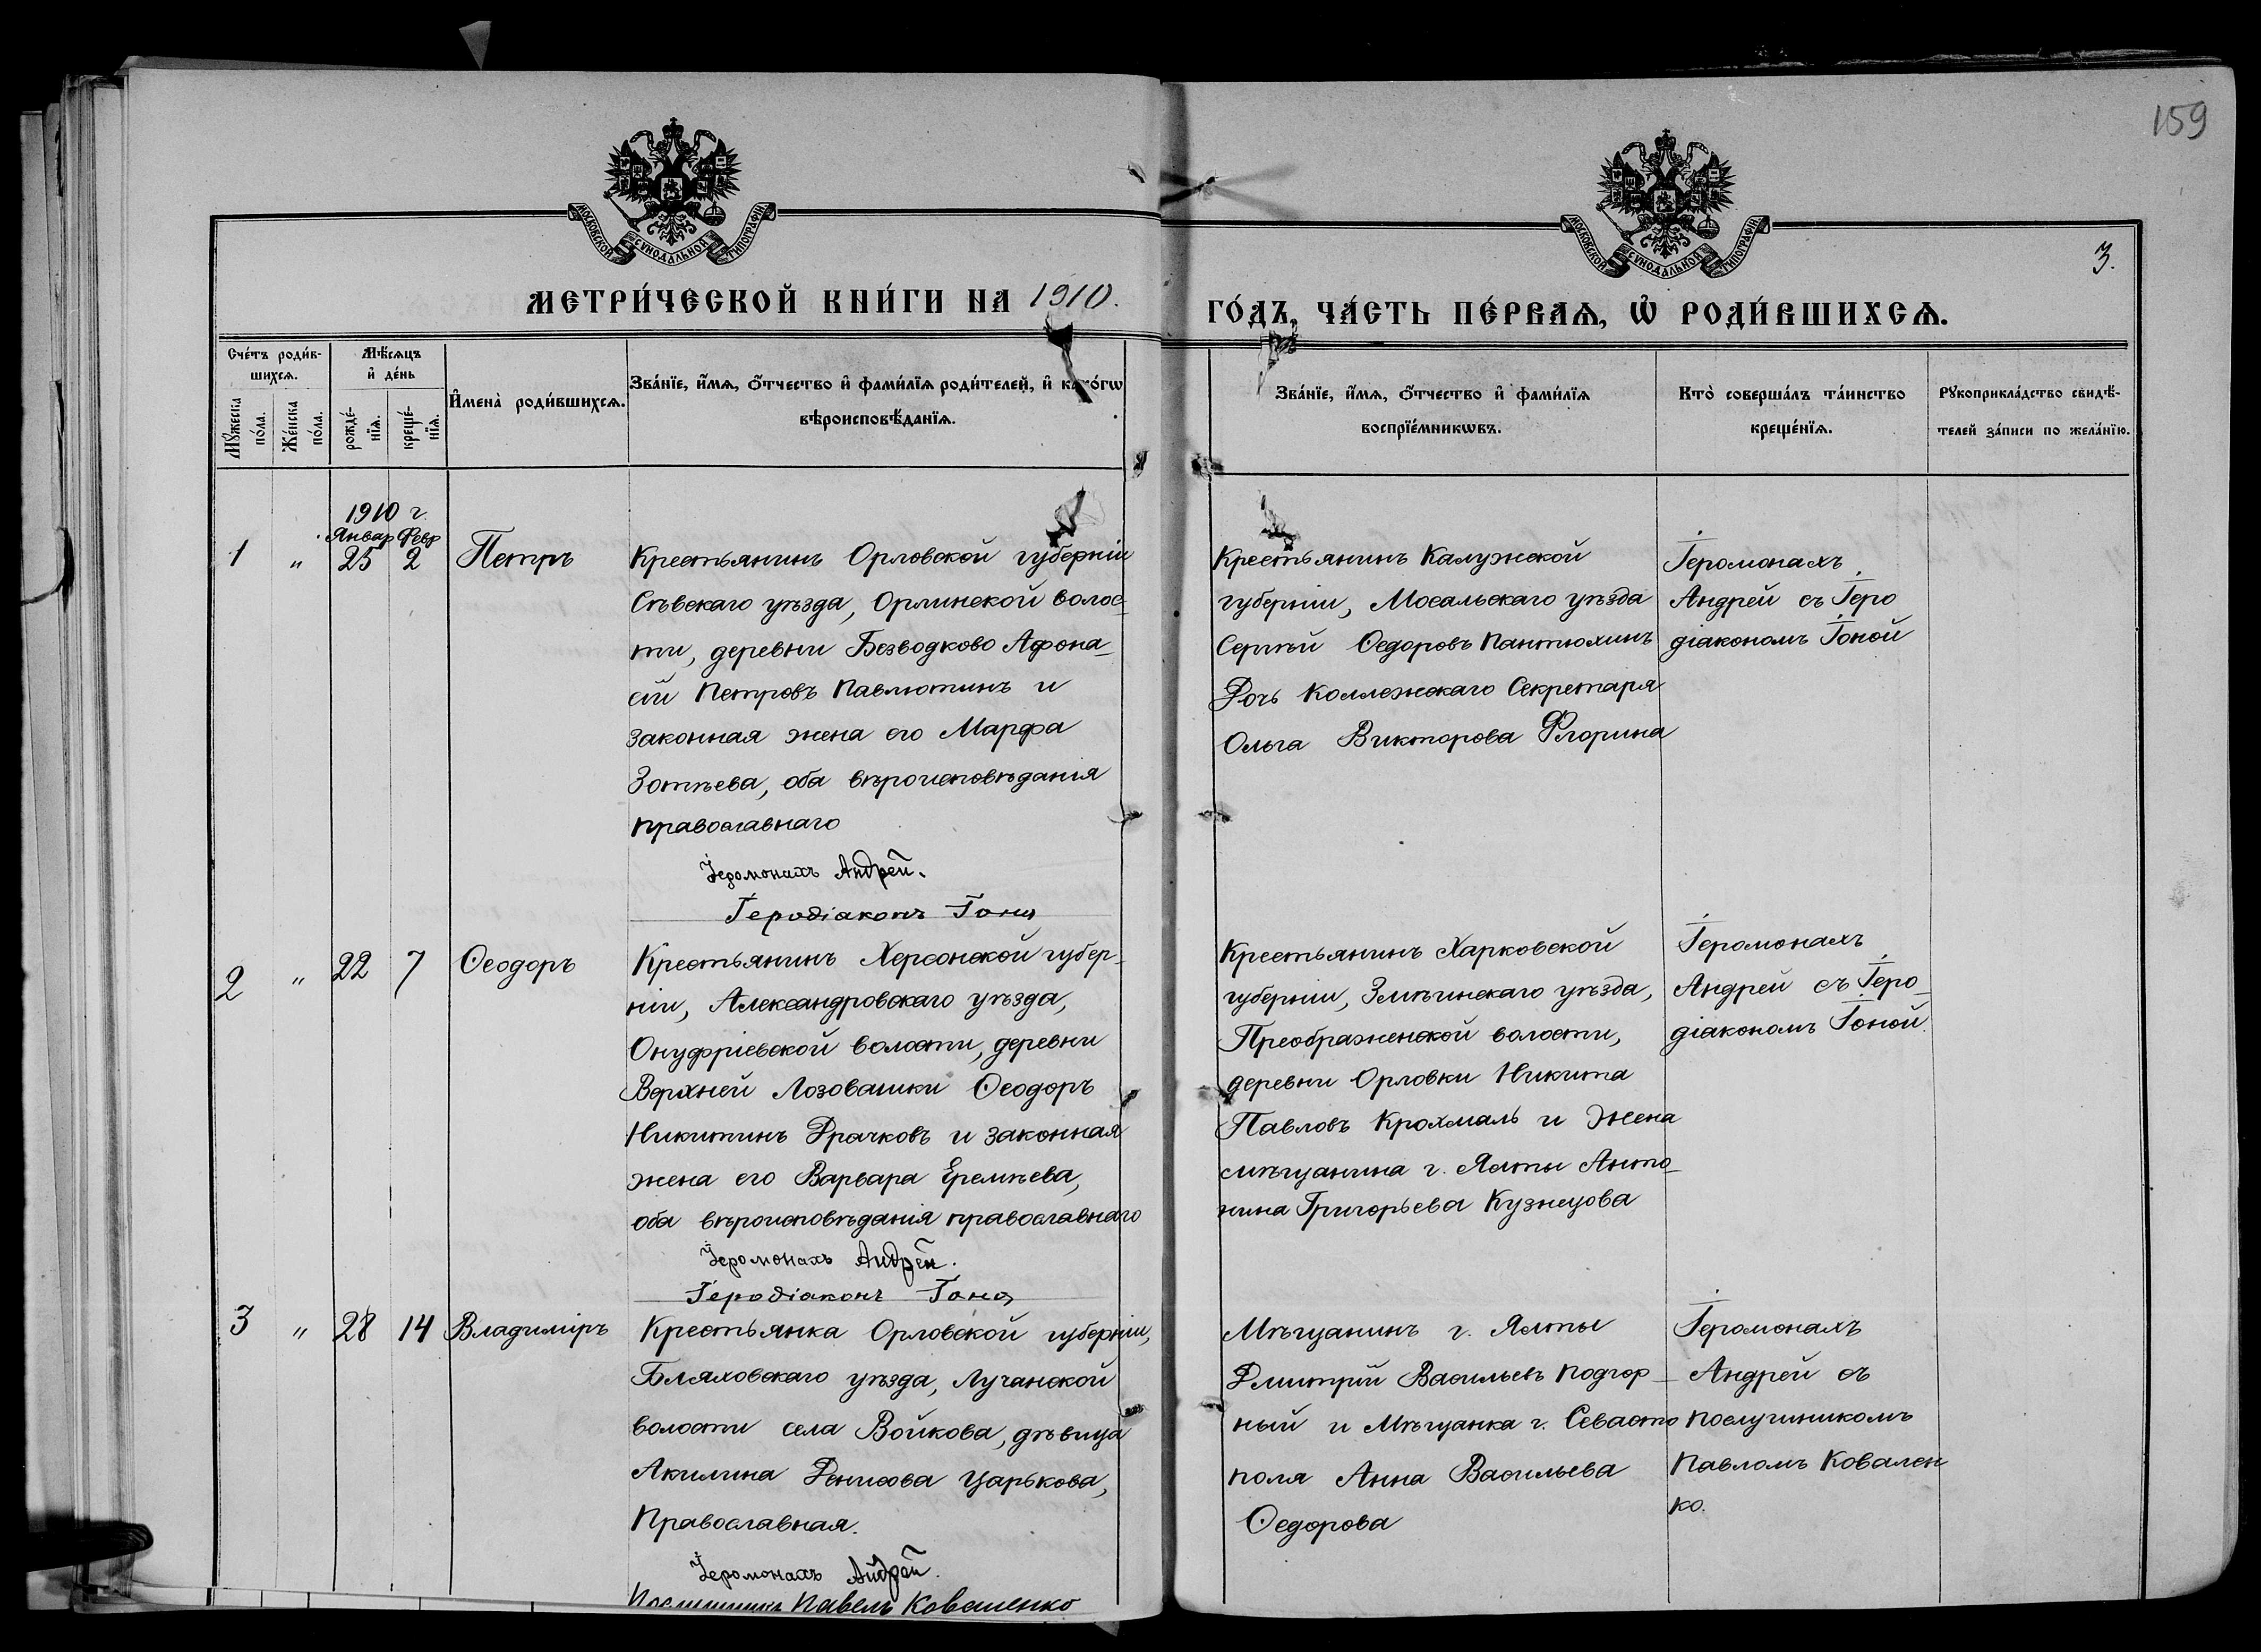 159
МОСКОВСКОЙ СѴНОДАЛЬНОЙ ТИПОГРАФІИ.
МОСКОВСКОЙ СѴНОДАЛЬНОЙ ТИПОГРАФІИ.
3.
МЕТРИ́ЧЕСКОЙ КНИ́ГИ НА 1910.
ГО́ДЪ, ЧА́СТЬ ПЕ́РВАѦ, Ѡ҆ РОДИ́ВШИХСѦ.
Сче́тъ роди́в-
шихсѧ.
Мꙋ́жеска
по́ла.
Же́нска
по́ла.
Мѣ́сѧцъ
и҆ де́нь
рожде́-
нїѧ.
креще́-
нїѧ.
И҆мена̀ роди́вшихсѧ.
Зва́нїе, и҆́мѧ, ѻ҆́тчество и҆ фами́лїѧ роди́телей, и҆ како́гѡ
вѣроисповѣ́данїѧ.
Зва́нїе, и҆́мѧ, ѻ҆́тчество и҆ фами́лїѧ
воспрїе́мникѡвъ.
Кто̀ соверша́лъ та́инство
креще́нїѧ.
Рꙋкоприкла́дство свидѣ́-
телей за́писи по жела́нїю.
1910 г.
Январ Февр
1 " 25 2 Петръ
Крестьянинъ Орловской губерніи
Сѣвскаго уѣзда, Орлинской волос-
ти, деревни Безводково Афона-
сій Петровъ Павлютинъ и
законная жена его Марфа
Зотѣева, оба вѣроисповѣданія
православнаго
Іеромонахъ Андрей.
Іеродіаконъ Іона
Крестьянинъ Калужской
губерніи, Мосальскаго уѣзда
Сергѣй Ѳедоровъ Пантюхинъ
Дочь Коллежскаго Секретаря
Ольга Викторова Флорина
Іеромонахъ
Андрей съ Іеро
діакономъ Іоной
2 " 22 7 Ѳеодоръ
Крестьянинъ Херсонской губер-
ніи, Александровскаго уѣзда,
Онуфріевской волости, деревни
Верхней Лозоватки Ѳеодоръ
Никитинъ Драчковъ и законная
жена его Варвара Еремѣева,
оба вѣроисповѣданія православнаго
Іеромонахъ Андрей.
Іеродіаконъ Іона
Крестьянинъ Харковской
губерніи, Змѣинскаго уѣзда,
Преображенской волости,
деревни Орловки Никита
Павловъ Крохмаль и Жена
мѣщанина г. Ялты Анто-
нина Григорьева Кузнецова
Іеромонахъ
Андрей съ Іеро-
діакономъ Іоной.
3 " 28 14 Владиміръ
Крестьянка Орловской губерніи,
Бляховскаго уѣзда, Лучанской
волости села Войкова, дѣвица
Акилина Денисова Царькова,
Православная.
Іеромонахъ Андрей.
Послушникъ Павелъ Коваленко
Мѣщанинъ г. Ялты
Дмитрій Васильевъ Подгор-
ный и Мѣщанка г. Севасто
поля Анна Васильева
Ѳедорова
Іеромонахъ
Андрей съ
послушникомъ
Павломъ Ковален
ко.